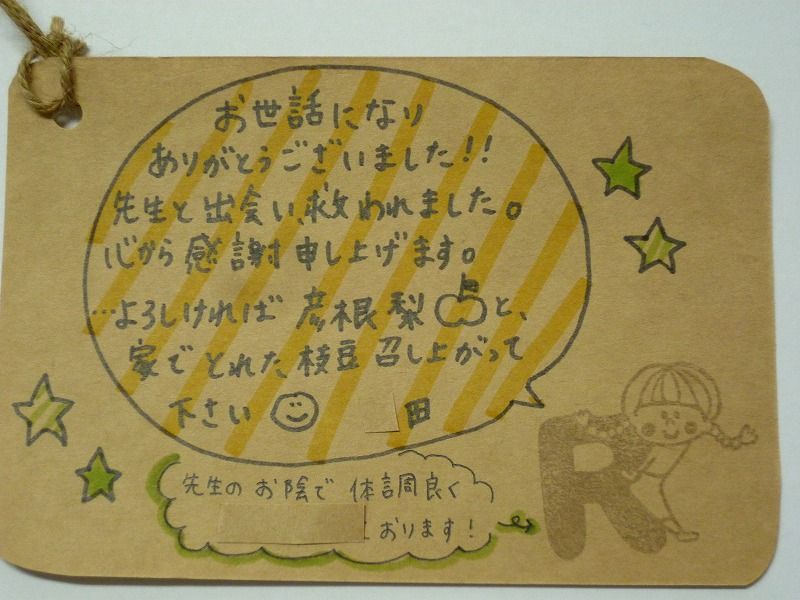 お世話になり
ありがとうございました!!
先生と出会い、救われました。
心から感謝申し上げます。
…よろしければ 彦根梨と、
家でとれた枝豆召し上がって
下さい 田
先生のお陰で 体調良く
おります!
R